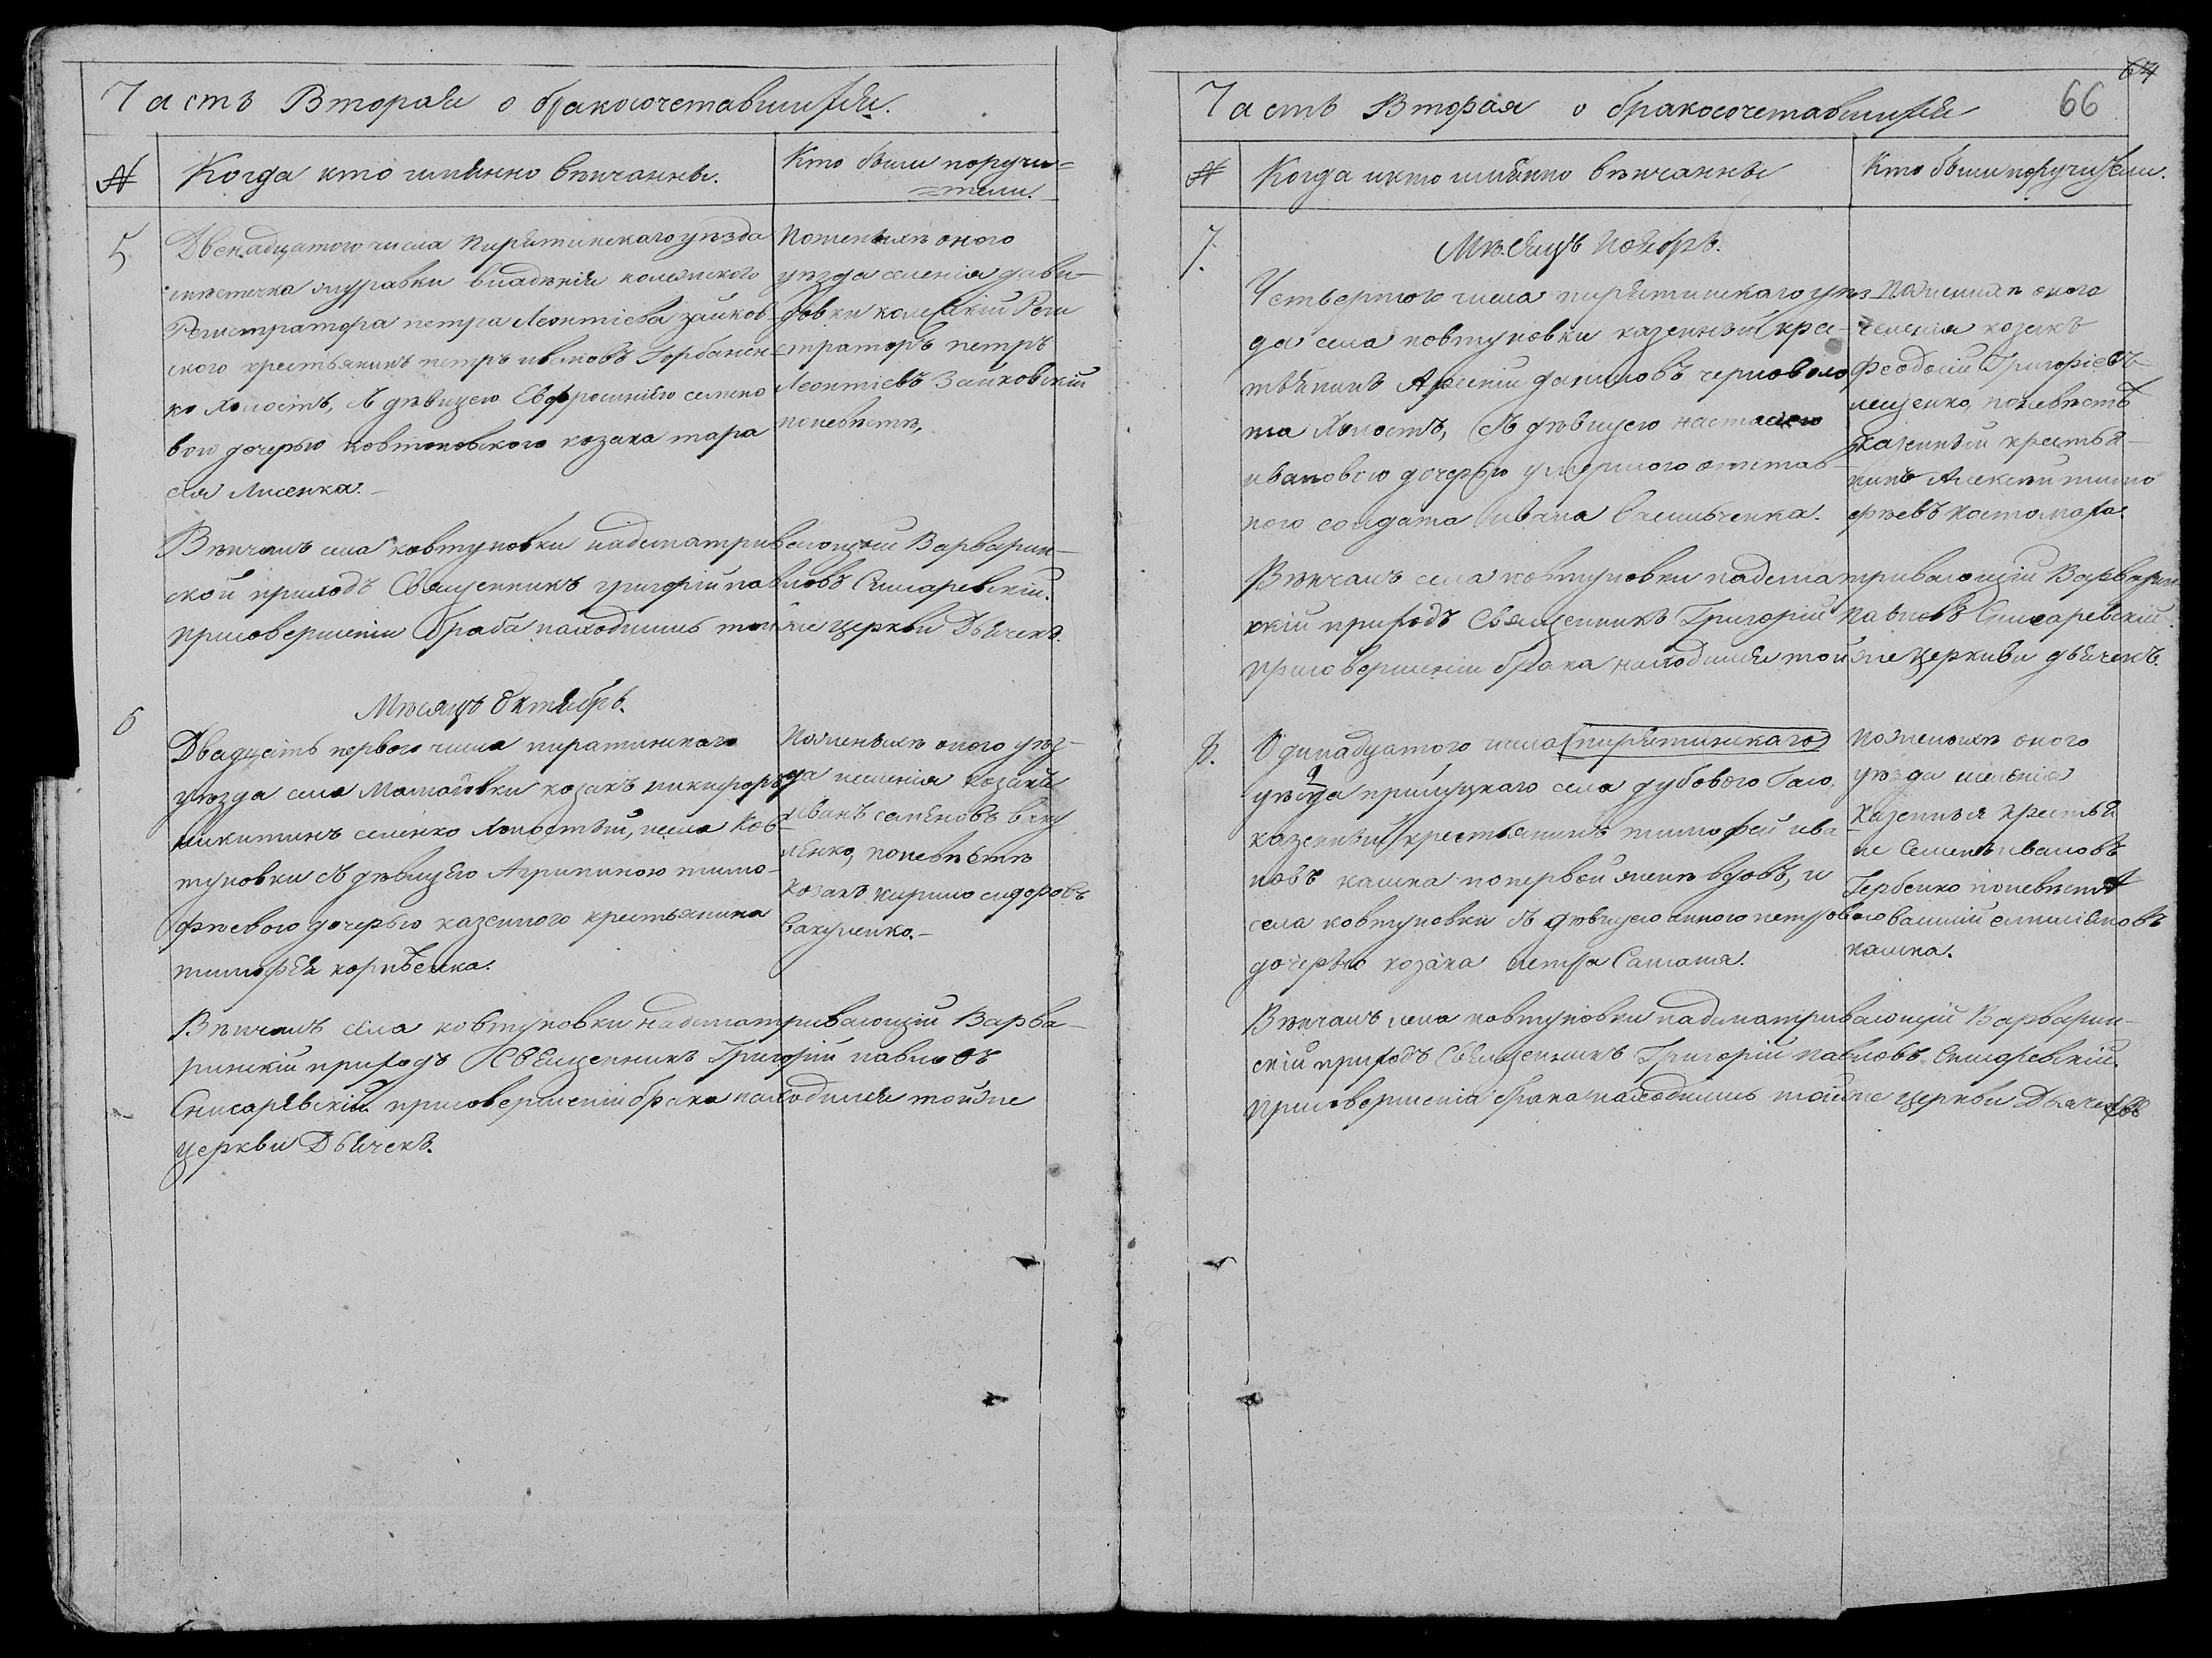 Часть Вторая о бракосочетавшихся.
№
Когда кто имянно венчанны.
Кто были поручи=
=тели.
5
Двенадцатого числа Пирятинскаго уезда
местечка Журавки владения колежского
Регистратора петра Леонтиева зайков-
ского крестьянинъ петръ ивановъ Горбанен-
ко Холостъ, съ девицею Евфросиниею семено
вою дочерью ковтоновского козака тара
сия Лисенка.-
Поженихе оного
уезда селения дави-
довки колежский Реги
стратор петръ
Леонтиевъ Зайковский
поневесте,
Венчалъ села ковтуновки надсматривающий Варварин-
ской приходъ Священникъ григорий павловъ Снисаревский.
присовершении брака находились той же церкви Дьячекъ.
Месяцъ Октябрь.
6
Двадцать первого числа пирятинскаго
уезда села Мамаювки козакъ никифоръ
никитинъ семенко Холостый, села Ков-
туновки съ девицею Агрипиною тимо-
феевою дочерью казенного крестьянина
тимофея корнѣенка.
Поженихе оного уез-
да селения козакъ
иванъ семеновъ ваку
ленко, поневесте
козакъ кирило сидоровъ
вакуленко.-
Венчалъ села ковтуновки надсматривающий Варва-
ринский приходъ Священникъ Григорий павловъ
Снисаревский. присовершении брака находился той же
церкви Дьячекъ.
Часть Вторая о бракосочетавшихся
66
67
№
Когда икто имянно венчанны
Кто были поручители.
7.
Месяцъ Ноябрь.
Четвертого числа пирятинскаго уез-
да села ковтуновки казенный кре-
тьянинъ Арсений даниловъ черновол
та Холостъ, съ девицею настасиею
ивановою дочерью умершого отстав-
ного солдата ивана василъченка.
Поженихе оного
селения козакъ
Феодосий Григориевъ
лещенко, поневесте
казенный крестья-
нинъ Алексей тимо
феевъ костомаха.
Венчалъ села ковтуновки надсматривающий Варварин
ский приходъ Священникъ Григорий павловъ Снисаревский.
присовершении брака находился той же церкви дьячекъ.
8.
Одинадцатого числа (пирятинскаго)
уезда прилуцкаго села дубового Гаю,
казенный крестьянинъ тимофей ива
новъ кашка попервой жене вдовъ, и
села ковтуновки съ девицею анною петровою
дочерью козака петра Самаша.
Поженихе оного
уезда селения
Казенныя крестья
не Семенъ ивановъ
Гербенко поневесте
василий емилияновъ
кашка.
Венчалъ села ковтуновки надсматривающий Варварин-
ский приходъ Священникъ Григорий павловъ Снисаревский.
присовершения брака находились той же церкви Дьячекъ